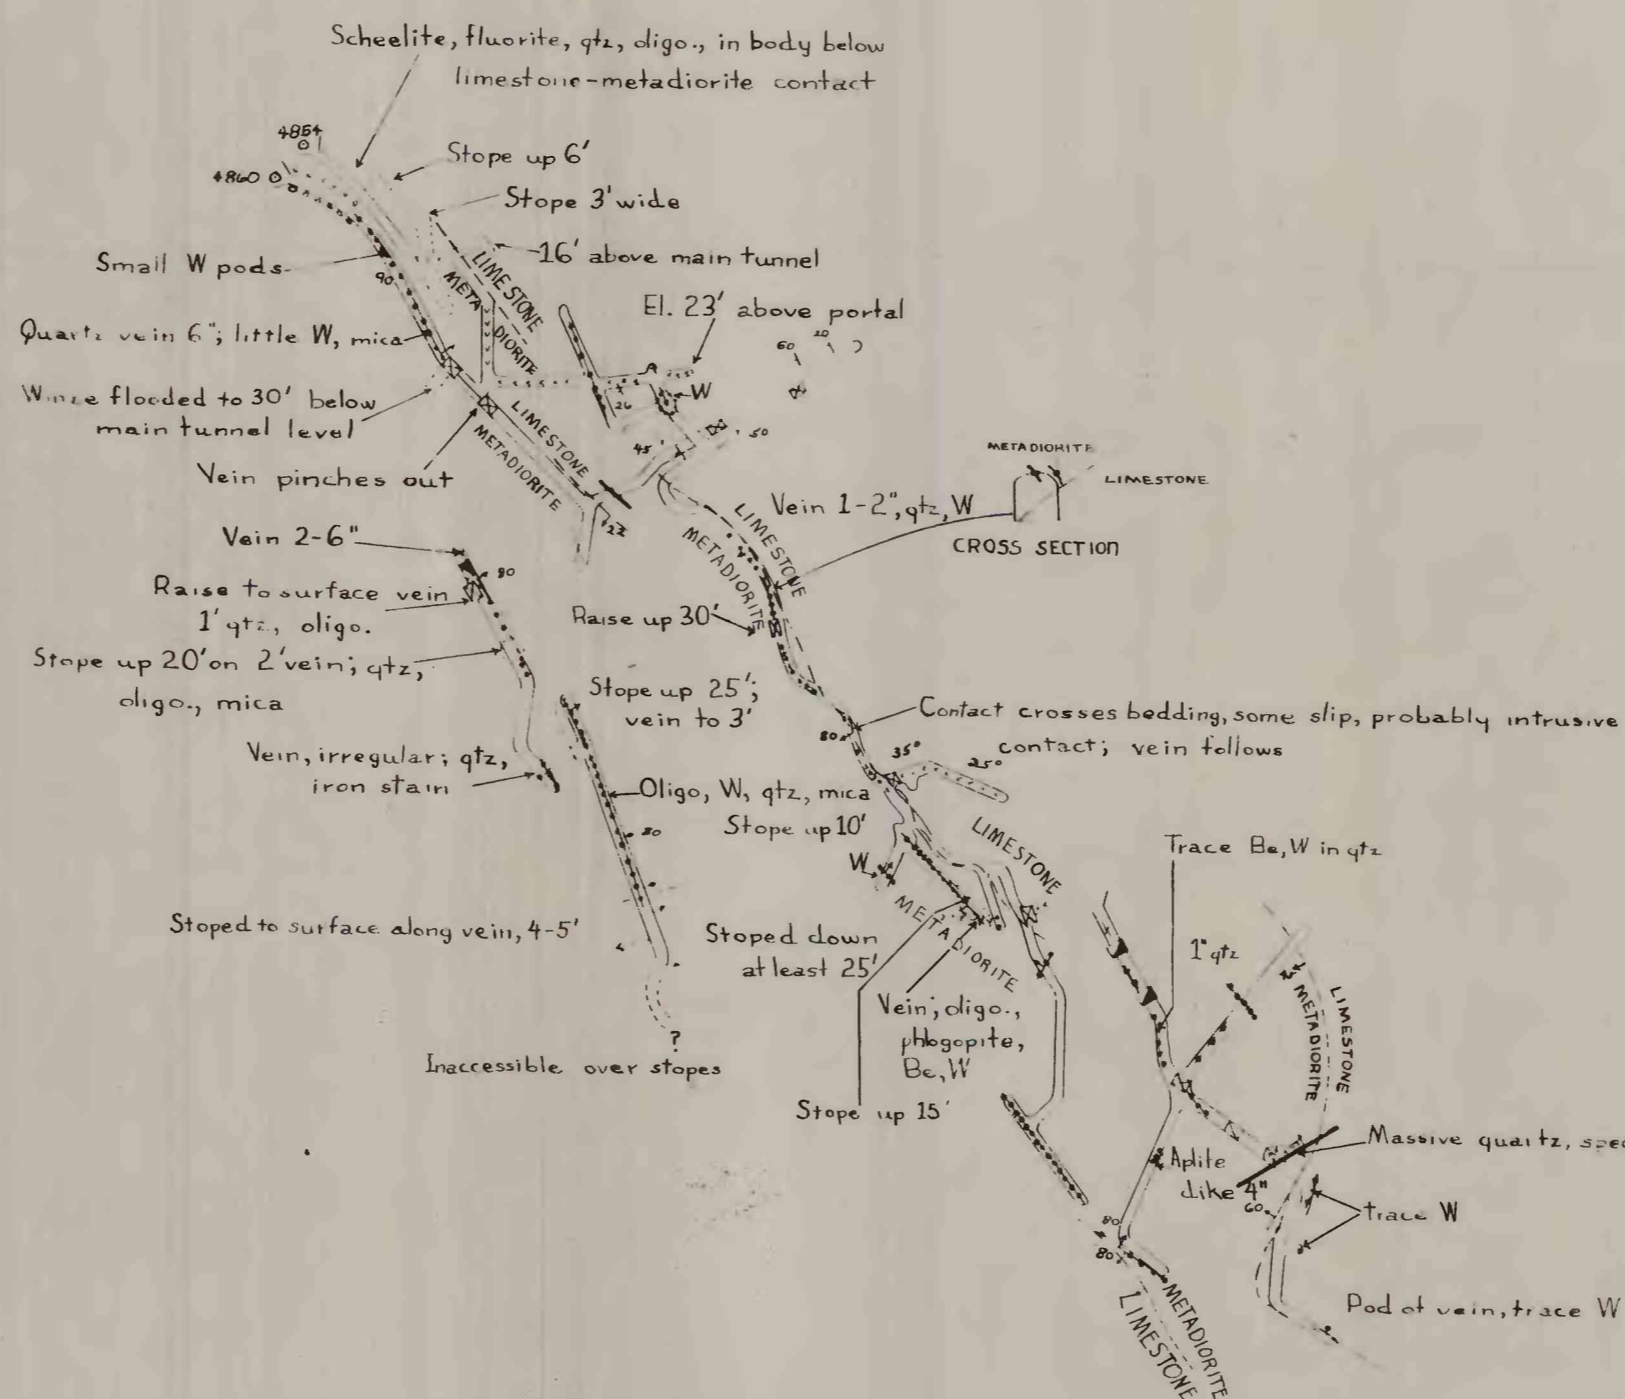 Scheelite, fluorite, qtz, oligo., in body below
limestone-metadiorite contact
4854
4860
Stope up 6'
Stope 3' wide
16' above main tunnel
Small W pods
90
LIMESTONE
META DIORITE
El. 23' above portal
Quartz vein 6"; little W, mica
60
20
Winze flooded to 30' below
main tunnel level
W
26
50
45
LIMESTONE
METADIORITE
Vein pinches out
METADIORITE
LIMESTONE
CROSS SECTION
Vein 1-2", qtz, W
22
LIMESTONE
METADIORITE
Vein 2-6"
80
Raise to surface vein
1' qtz, oligo.
Raise up 30'
Stope up 20' on 2' vein; qtz,
oligo., mica
Stope up 25';
vein to 3'
Contact crosses bedding, some slip, probably intrusive
contact; vein follows
80
35°
25°
Vein, irregular; qtz,
iron stain
Oligo, W, qtz, mica
80
Stope up 10'
W
LIMESTONE
METADIORITE
Trace Be, W in qtz
Stoped to surface along vein, 4-5'
Stoped down
at least 25'
1" qtz
METADIORITE
LIMESTONE
Vein; oligo.,
phlogopite,
Be, W
?
Inaccessible over stopes
Stope up 15'
Massive quartz, spec
Aplite
dike 4"
60
trace W
80
80
Pod of vein, trace W
METADIORITE
LIMESTONE